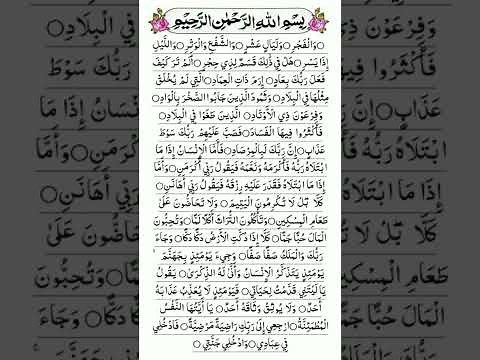 بِسْمِ اللهِ الرَّحْمٰنِ الرَّحِيْمِ
○وَالْفَجْرِ○وَلَيَالٍ عَشْرٍ○وَالشَّفْعِ وَالْوَتْرِ○وَاللَّيْلِ
إِذَا يَسْرِ○هَلْ فِي ذَٰلِكَ قَسَمٌ لِذِي حِجْرٍ○أَلَمْ تَرَ كَيْفَ
فَعَلَ رَبُّكَ بِعَادٍ○إِرَمَ ذَاتِ الْعِمَادِ○الَّتِي لَمْ يُخْلَقْ
مِثْلُهَا فِي الْبِلَادِ○وَثَمُودَ الَّذِينَ جَابُوا الصَّخْرَ بِالْوَادِ○
وَفِرْعَوْنَ ذِي الْأَوْتَادِ○الَّذِينَ طَغَوْا فِي الْبِلَادِ○
فَأَكْثَرُوا فِيهَا الْفَسَادَ○فَصَبَّ عَلَيْهِمْ رَبُّكَ سَوْطَ
عَذَابٍ○إِنَّ رَبَّكَ لَبِالْمِرْصَادِ○فَأَمَّا الْإِنْسَانُ إِذَا مَا
ابْتَلَاهُ رَبُّهُ فَأَكْرَمَهُ وَنَعَّمَهُ فَيَقُولُ رَبِّي أَكْرَمَنِ○وَأَمَّا
إِذَا مَا ابْتَلَاهُ فَقَدَرَ عَلَيْهِ رِزْقَهُ فَيَقُولُ رَبِّي أَهَانَنِ○
كَلَّا بَلْ لَا تُكْرِمُونَ الْيَتِيمَ○وَلَا تَحَاضُّونَ عَلَىٰ
طَعَامِ الْمِسْكِينِ○وَتَأْكُلُونَ التُّرَاثَ أَكْلًا لَمًّا○وَتُحِبُّونَ
الْمَالَ حُبًّا جَمًّا○كَلَّا إِذَا دُكَّتِ الْأَرْضُ دَكًّا دَكًّا○وَجَاءَ
رَبُّكَ وَالْمَلَكُ صَفًّا صَفًّا○وَجِيءَ يَوْمَئِذٍ بِجَهَنَّمَ
يَوْمَئِذٍ يَتَذَكَّرُ الْإِنْسَانُ وَأَنَّىٰ لَهُ الذِّكْرَىٰ○يَقُولُ
يَا لَيْتَنِي قَدَّمْتُ لِحَيَاتِي○فَيَوْمَئِذٍ لَا يُعَذِّبُ عَذَابَهُ
أَحَدٌ○وَلَا يُوثِقُ وَثَاقَهُ أَحَدٌ○يَا أَيَّتُهَا النَّفْسُ
الْمُطْمَئِنَّةُ○ارْجِعِي إِلَىٰ رَبِّكِ رَاضِيَةً مَرْضِيَّةً○فَادْخُلِي
فِي عِبَادِي○وَادْخُلِي جَنَّتِي○